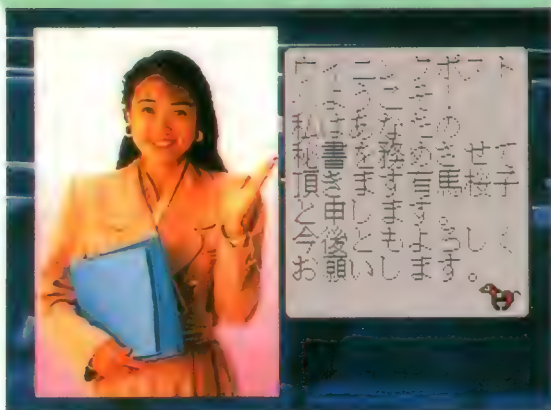 ウイニングポスト
ようこそ
私はあなたの
秘書を務めさせて
頂きます有馬桜子
と申します。
今後ともよろしく
お願いします。